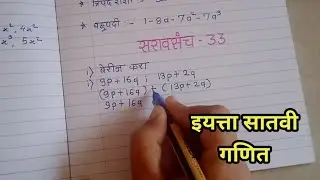 x², 4x²
x³, 5x²
त्रिपद राशी
* बहुपदी :- 1-8a-7a²-7a³
सरावसंच - 33
1) बेरीज करा
i) 9p+16q ; 13p+2q
(9p+16q) + (13p+2q)
9p+16q
इयत्ता सातवी
गणित